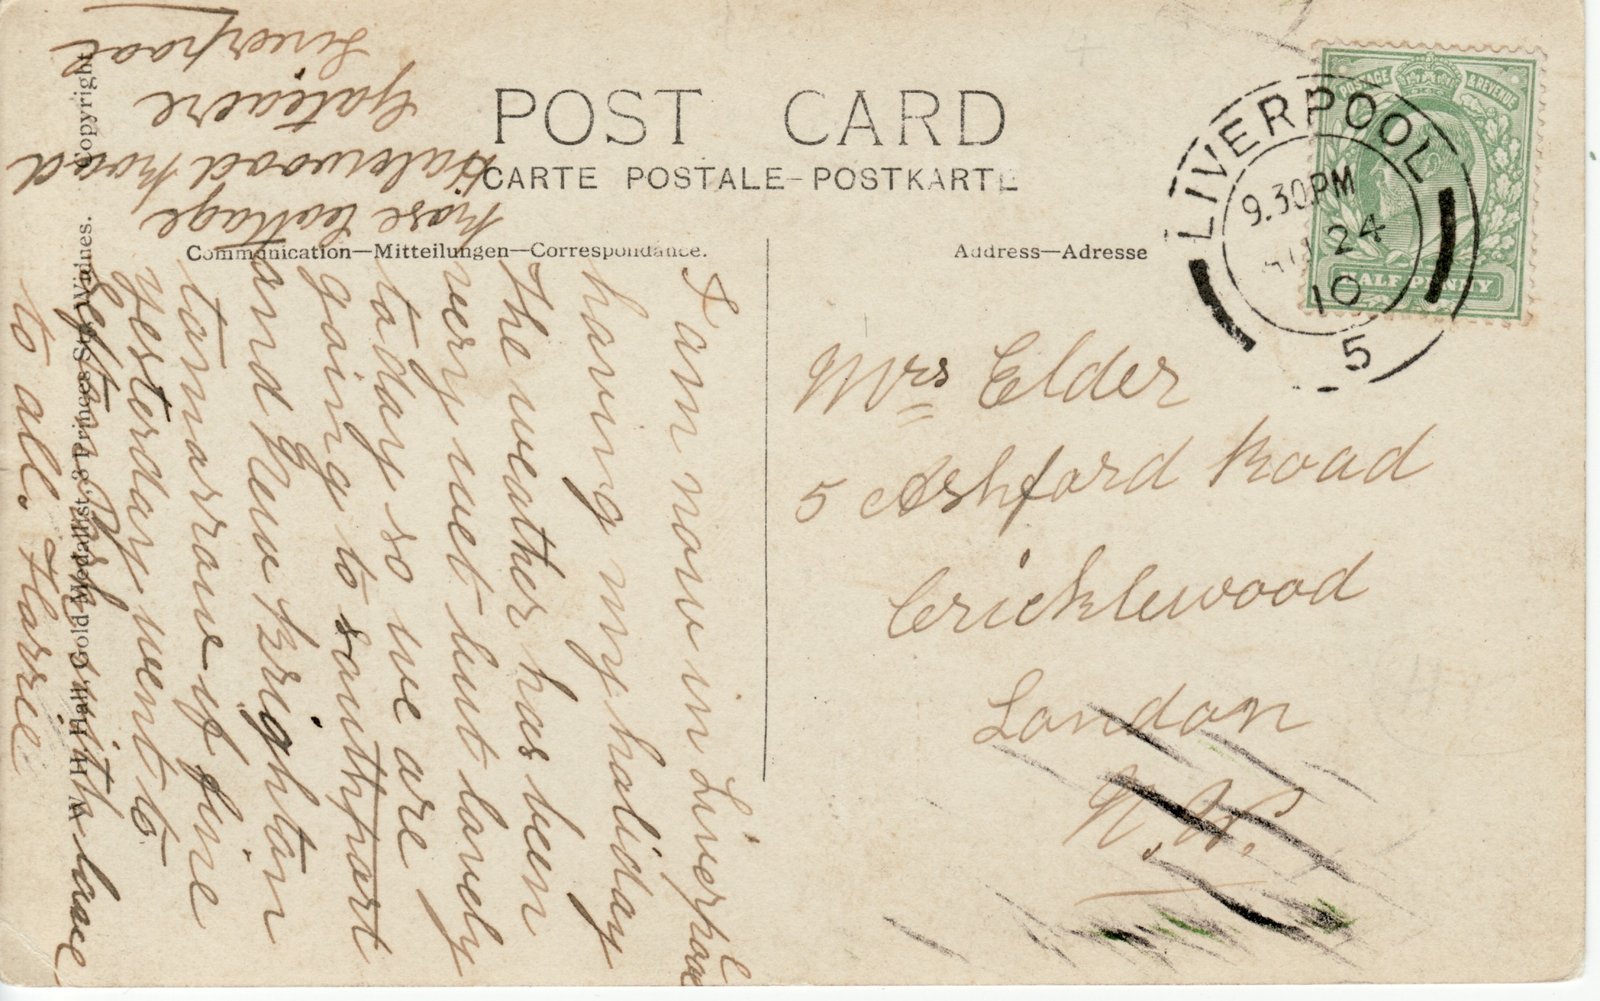 POST CARD
CARTE POSTALE-POSTKARTE
Communication—Mitteilungen—Correspondance.
Address—Adresse
POSTAGE & REVENUE
HALFPENNY
LIVERPOOL
9.30PM
24
10
5
Mrs Elder
5 Ashford Road
Cricklewood
London
N.W.
Rose Cottage
Halewood Road
Gateacre
Liverpool
I am now in Liverpool
having my holiday
The weather has been
very wet but lovely
today so we are
going to Southport
and New Brighton
tomorrow if fine
yesterday went to
Sefton Park with love
to all. Harrie
W. H. Hall, Gold Medallist, 3 Princes St., Widnes. Copyright.